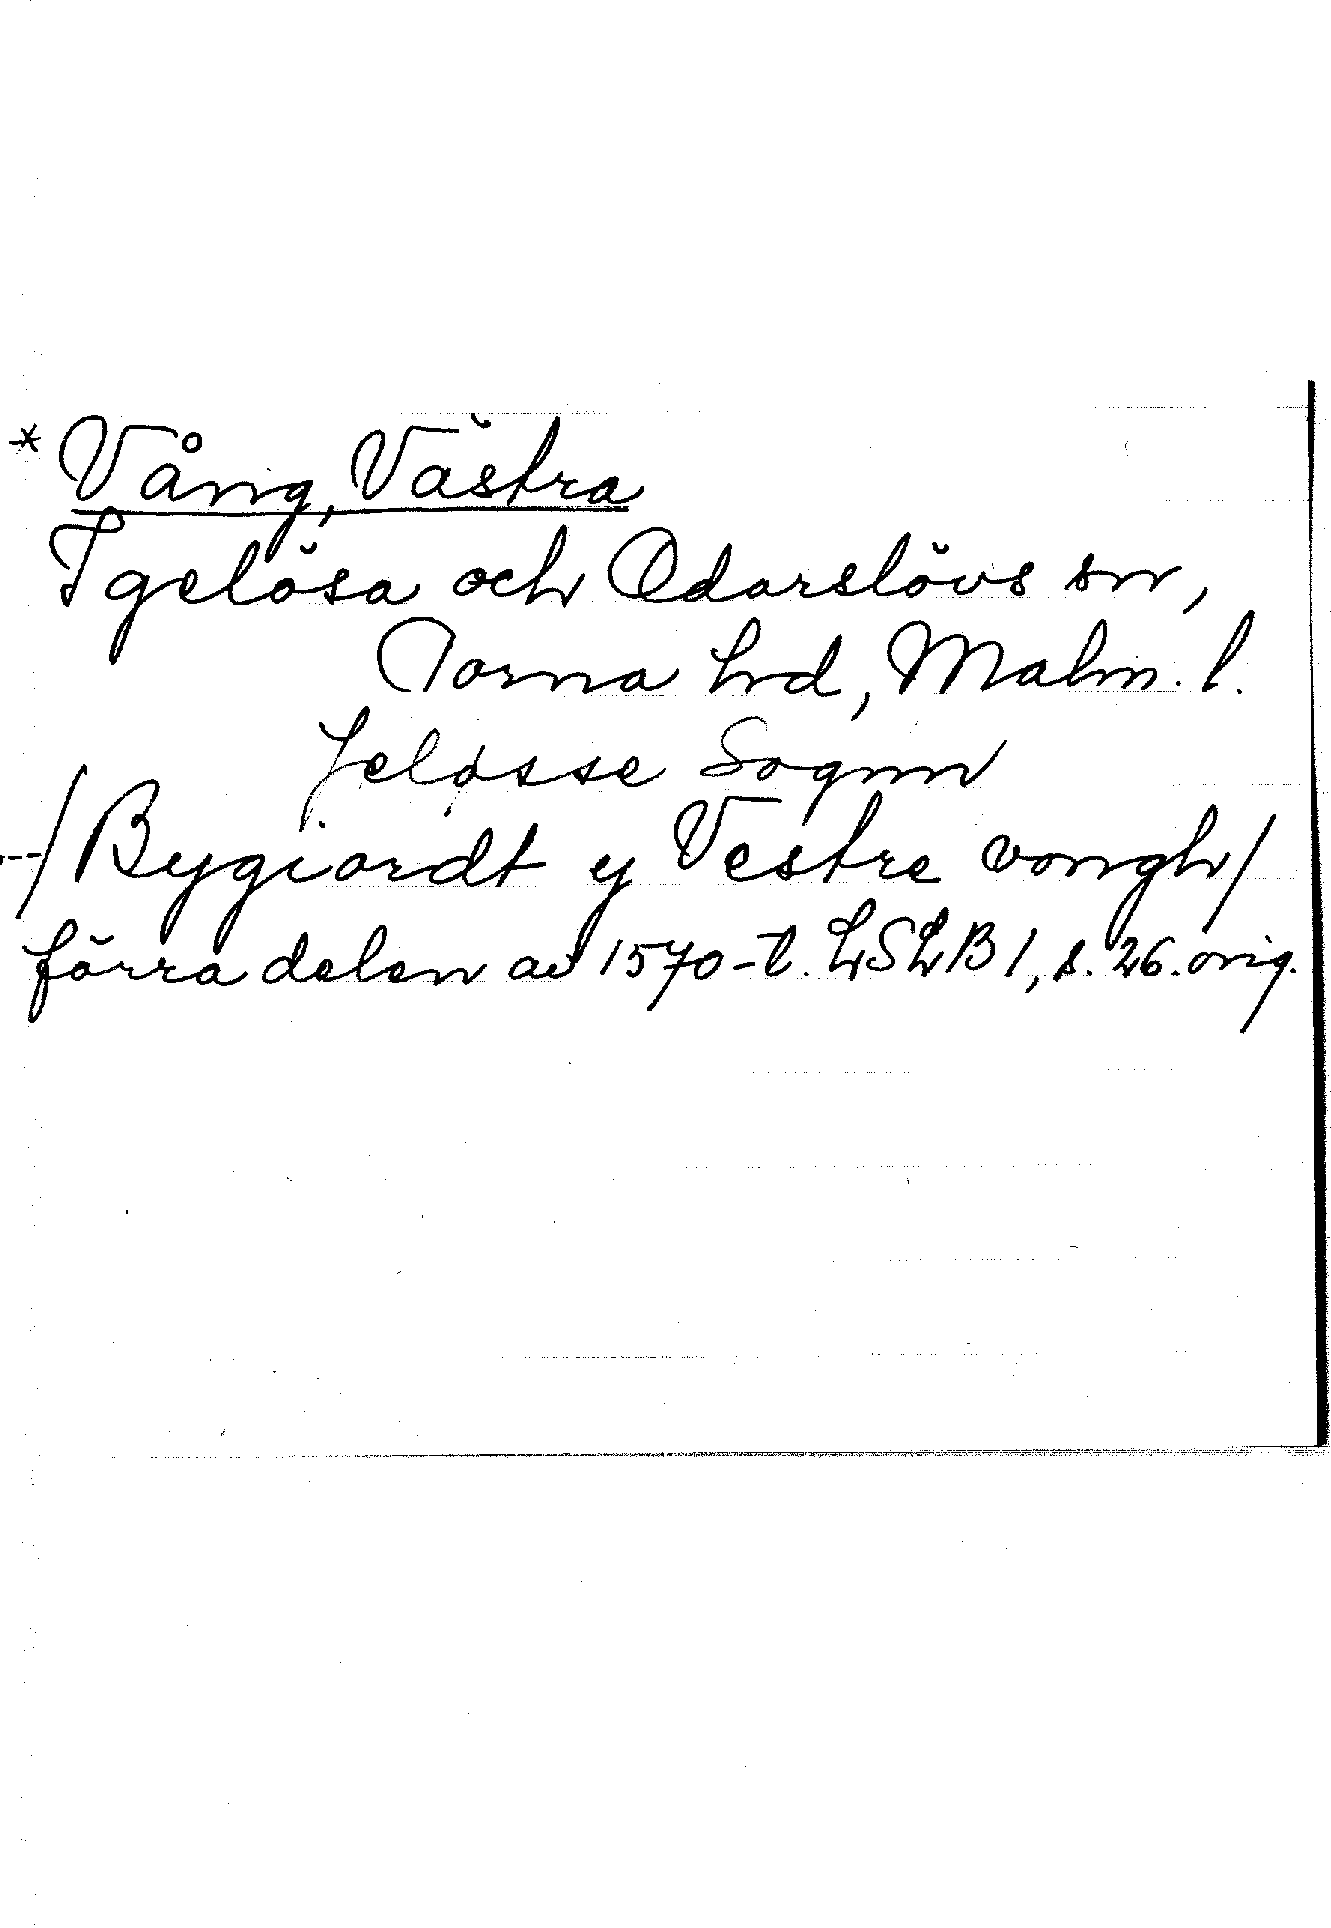 * Vång, Västra
Igelösa och Odarslövs snr,
Torna hrd, Malm. l.
Jeløsse Sognn
--/Bygiordt y Vestre vongh/
förra delen av 1570-t. LSLB 1, s. 26. orig.